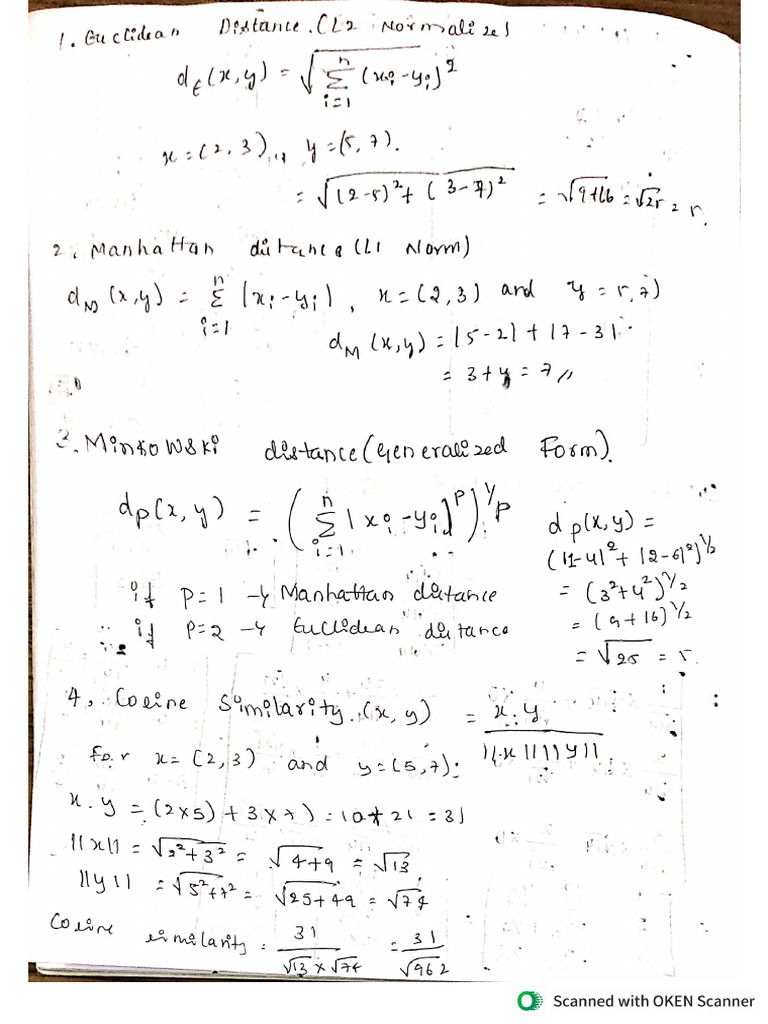 1. Euclidean Distance. (L2 Normalizes)
d_E(x,y) = √(Σ_{i=1}^{n} (x_i - y_i)²)
x = (2, 3), y = (5, 7).
= √((2-5)² + (3-7)²) = √(9+16) = √25 = 5.
2. Manhattan distance (L1 Norm)
d_M (x,y) = Σ_{i=1}^{n} |x_i - y_i|, x = (2,3) and y = 5,7)
d_M (x,y) = |5-2| + |7-3|
= 3+4 = 7 //
3. Minkowski distance (Generalized Form).
d_p(x,y) = (Σ_{i=1}^{n} |x_i - y_i|^p)^{1/p}
if P=1 → Manhattan distance
if P=2 → Euclidean distance
d_p(x,y) =
(|1-4|² + |2-6|²)^{1/2}
= (3²+4²)^{1/2}
= (9+16)^{1/2}
= √25 = 5.
4, Cosine Similarity (x, y) = x.y / ||x|| ||y||
For x = (2,3) and y = (5,7):
x.y = (2x5) + 3x7) = 10+21 = 31
||x|| = √2²+3² = √4+9 = √13,
||y|| = √5²+7² = √25+49 = √74
Cosine similarity = 31 / √13 x √74 = 31 / √962
Scanned with OKEN Scanner